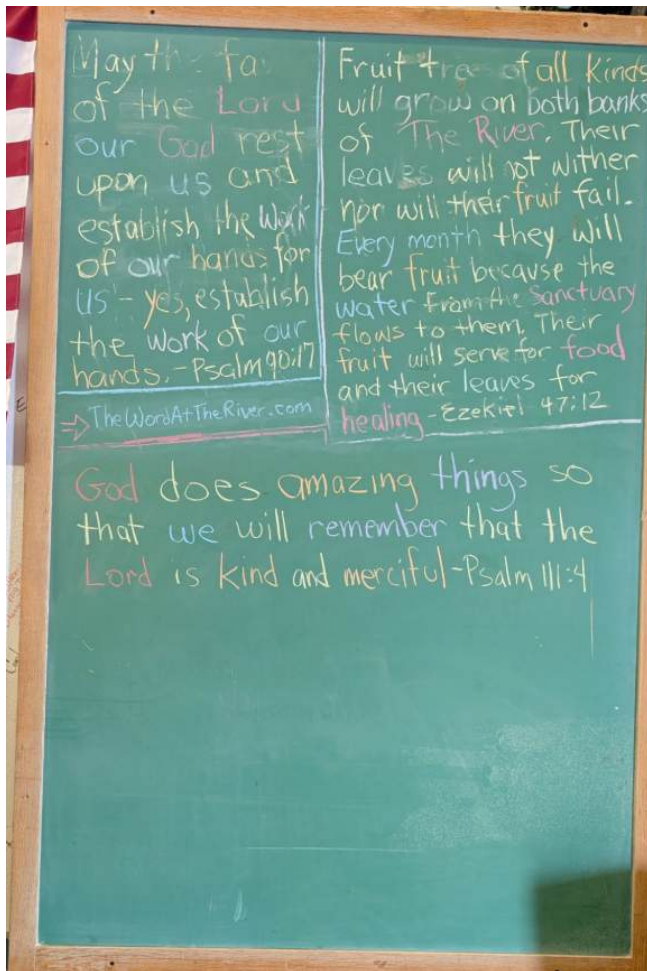 May the fa
of the Lord
our God rest
upon us and
establish the work
of our hands for
us - yes, establish
the work of our
hands. - Psalm 90:17
⇒ TheWordAtTheRiver.com
Fruit tre of all kinds
will grow on both banks
of The River. Their
leaves will not wither
nor will their fruit fail.
Every month they will
bear fruit because the
water from the Sanctuary
flows to them. Their
fruit will serve for food
and their leaves for
healing - Ezekiel 47:12
God does amazing things so
that we will remember that the
Lord is kind and merciful - Psalm 111:4